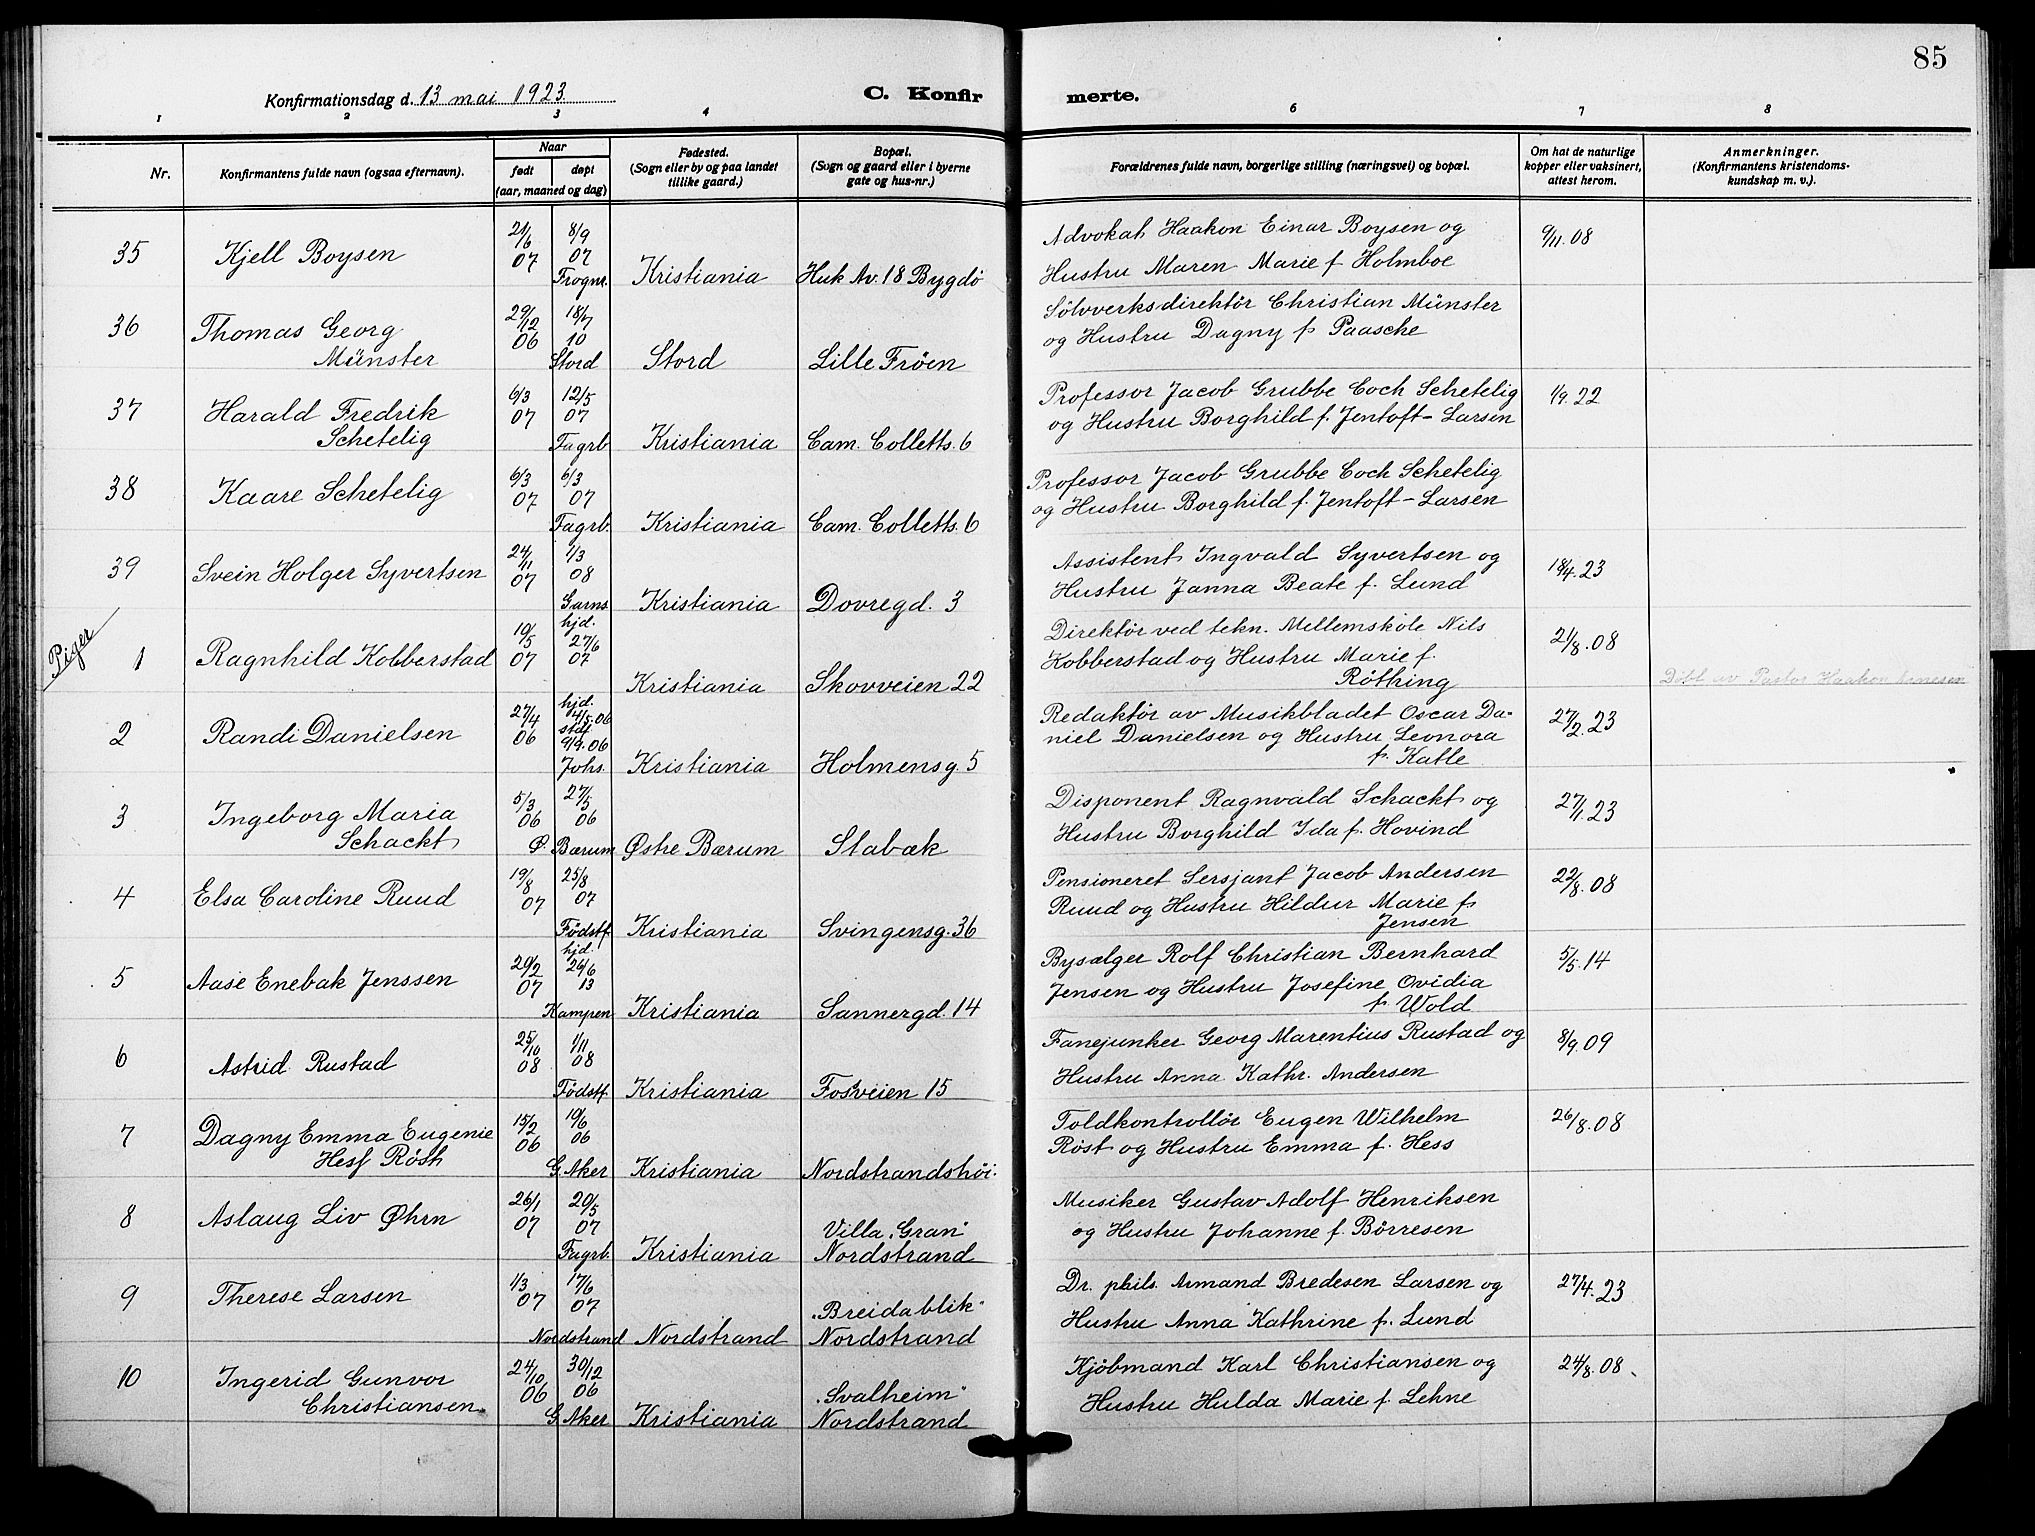 85
Konfirmationsdag d. 13 mai 1923
C. Konfir
merte.
1 2 3 4 6 7 8
Nr.
Konfirmantens fulde navn (ogsaa efternavn).
Naar
født døpt
(aar, maaned og dag)
Fødested.
(Sogn eller by og paa landet
tillike gaard.)
Bopæl.
(Sogn og gaard eller i byerne
gate og hus-nr.)
Forældrenes fulde navn, borgerlige stilling (næringsvei) og bopæl.
Om hat de naturlige
kopper eller vaksinert,
attest herom.
Anmerkninger.
(Konfirmantens kristendoms-
kundskap m. v.).
21/6 8/9 Advokat Haakon Einar Boysen og 9/11.08
35 Kjell Boysen 07 07 Hustru Maren Marie f. Holmboe
Frognr. Kristiania Huk Av. 18 Bygdö
29/12 18/7 Sölvverksdirektör Christian Münster
36 Thomas Georg 06 10 og Hustru Dagny f. Paasche
Münster Stord Stord Lille Fröen
6/3 12/5 Professor Jacob Grubbe Coch Schetelig 1/9.22
37 Harald Fredrik 07 07 og Hustru Borghild f. Jentoft-Larsen
Schetelig Fagrb Kristiania Cam. Colletts. 6
6/3 6/3 Professor Jacob Grubbe Coch Schetelig
38 Kaare Schetelig 07 07 og Hustru Borghild f. Jentoft-Larsen
Fagrb. Kristiania Cam. Colletts. 6
24/11 1/3 Assistent Ingvald Syvertsen og 18/4.23
39 Svein Holger Syvertsen 07 08 Hustru Janna Beate f. Lund
Garns. Kristiania Dovregd. 3
Piger
19/5 hjd. 27/6 Direktör ved tekn. Mellemskole Nils 21/8.08
1 Ragnhild Kobberstad 07 07 Kobberstad og Hustru Marie f.
Kristiania Skovveien 22 Röthing Döbt av Pastor Haakon
27/4 hjd. 14/5.06 Redaktör av Musikbladet Oscar Da- 27/2.23
2 Randi Danielsen 06 stdf. 9/9.06 niel Danielsen og Hustru Leonora
Johs. Kristiania Holmensg. 5 f. Katle
5/3 27/5 Disponent Ragnvald Schackt og 27/1.23
3 Ingeborg Maria 06 06 Hustru Borghild Ida f. Hovind
Schackt Ø. Bærum Østre Bærum Stabæk
19/8 25/8 Pensioneret Sersjant Jacob Andersen 22/8.08
4 Elsa Caroline Ruud 07 07 Ruud og Hustru Hildur Marie f.
Födstf. Kristiania Svingensg. 36 Jensen
20/2 hjd. 26/6 Bysælger Rolf Christian Bernhard 5/5.14
5 Aase Enebak Jenssen 07 13 Jensen og Hustru Josefine Ovidia
Kampen Kristiania Sannergd. 14 f. Wold
25/10 1/11 Fanejunker Georg Marentius Rustad og 8/9.09
6 Astrid Rustad 08 08 Hustru Anna Kathr. Andersen
Födstf. Kristiania Fosveien 15
15/2 10/6 Toldkontrollör Eugen Wilhelm 26/8.08
7 Dagny Emma Eugenie 06 06 Röst og Hustru Emma f. Hess
Hess Röst G. Aker Kristiania Nordstrandshöi.
26/1 20/5 Musiker Gustav Adolf Henriksen
8 Aslaug Liv Øhrn 07 07 Villa "Gran" og Hustru Johanne f. Börresen
Fagrb. Kristiania Nordstrand
1/3 17/6 Dr. phils. Armand Bredesen Larsen og 27/4.23
9 Therese Larsen 07 07 "Breidablik" Hustru Anna Kathrine f. Lund
Nordstrand Nordstrand Nordstrand
24/10 30/12 Kjöbmand Karl Christiansen og 24/8.08
10 Ingerid Gunvor 06 06 "Svalheim" Hustru Hulda Marie f. Lehne
Christiansen. G. Aker Kristiania Nordstrand